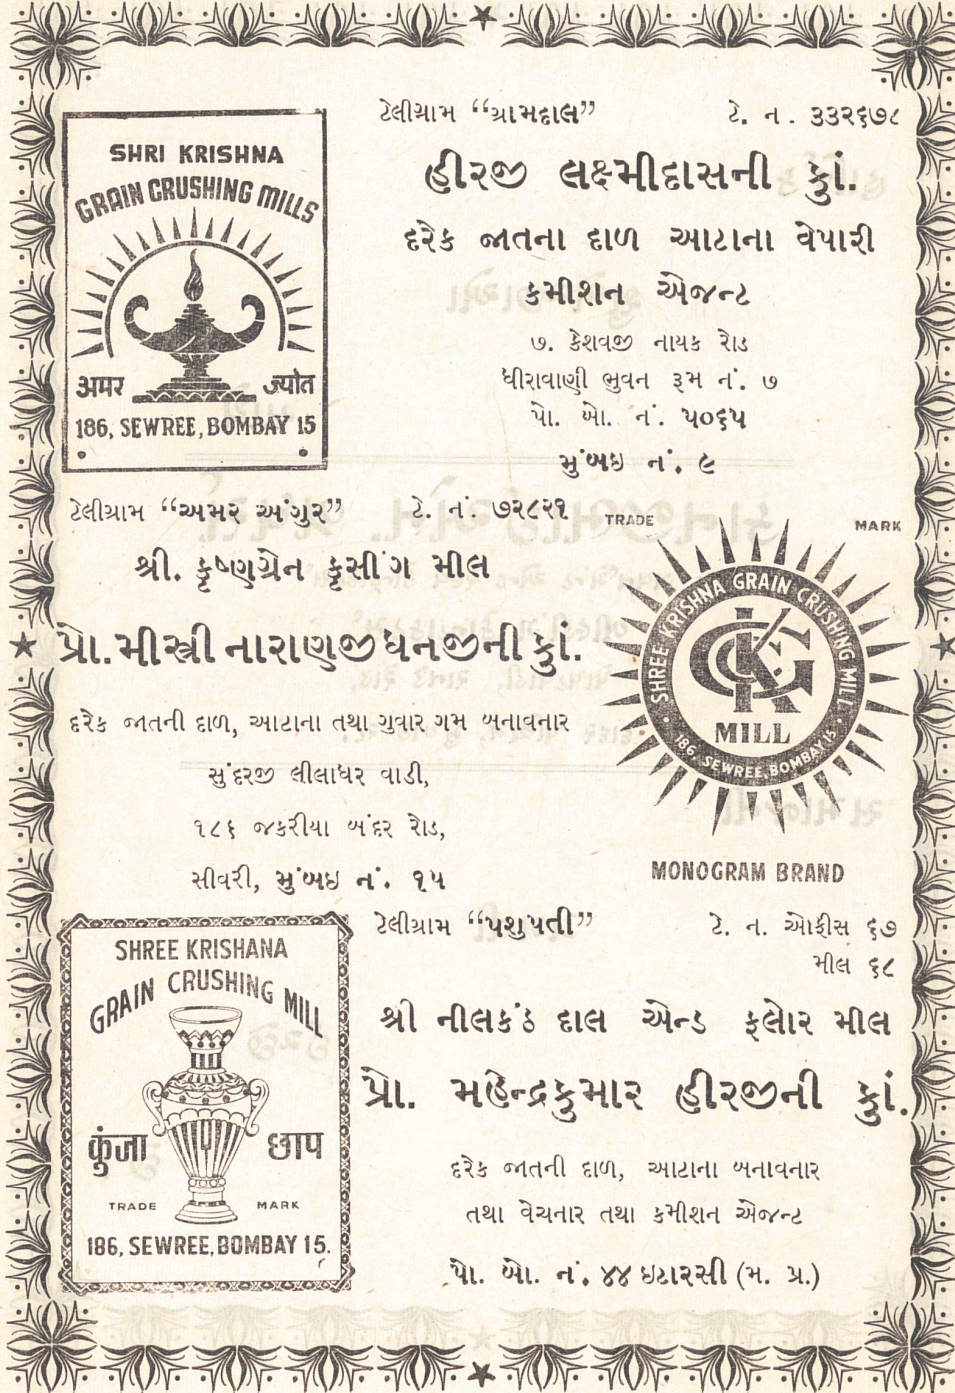 SHRI KRISHNA
GRAIN CRUSHING MILLS
अमर ज्योत
186, SEWREE, BOMBAY 15
ટેલીગ્રામ “ગ્રામદાલ” ટે. ન. ૩૩૨૬૭૮
હીરજી લક્ષ્મીદાસની કુાં.
દરેક જાતના દાળ આટાના વેપારી
કમીશન એજન્ટ
૭. કેશવજી નાયક રોડ
ધીરાવાણી ભુવન રૂમ નં. ૭
પો. બો. નં. ૫૦૬૫
મુંબઇ નં. ૯
ટેલીગ્રામ “અમર અંગુર” ટે. નં. ૭૨૮૨૧
શ્રી. કૃષ્ણગ્રેન કૃસીંગ મીલ
પ્રો. મીસ્ત્રી નારાણજી ધનજીની કુાં.
દરેક જાતની દાળ, આટાના તથા ગુવાર ગમ બનાવનાર
સુંદરજી લીલાધર વાડી,
૧૮૬ જકરીયા બંદર રોડ,
સીવરી, મુંબઇ નં. ૧૫
TRADE MARK
SHREE KRISHNA GRAIN CRUSHING MILL
GKC
MILL
186, SEWREE, BOMBAY 15
MONOGRAM BRAND
SHREE KRISHANA
GRAIN CRUSHING MILL
कुंजा छाप
TRADE MARK
186, SEWREE, BOMBAY 15.
ટેલીગ્રામ “પશુપતી” ટે. ન. ઓફીસ ૬૭
મીલ ૬૮
શ્રી નીલકંઠ દાલ એન્ડ ફ્લોર મીલ
પ્રો. મહેન્દ્રકુમાર હીરજીની કુાં.
દરેક જાતની દાળ, આટાના બનાવનાર
તથા વેચનાર તથા કમીશન એજન્ટ
પો. બો. નં. ૪૪ ઇટારસી (મ. પ્ર.)